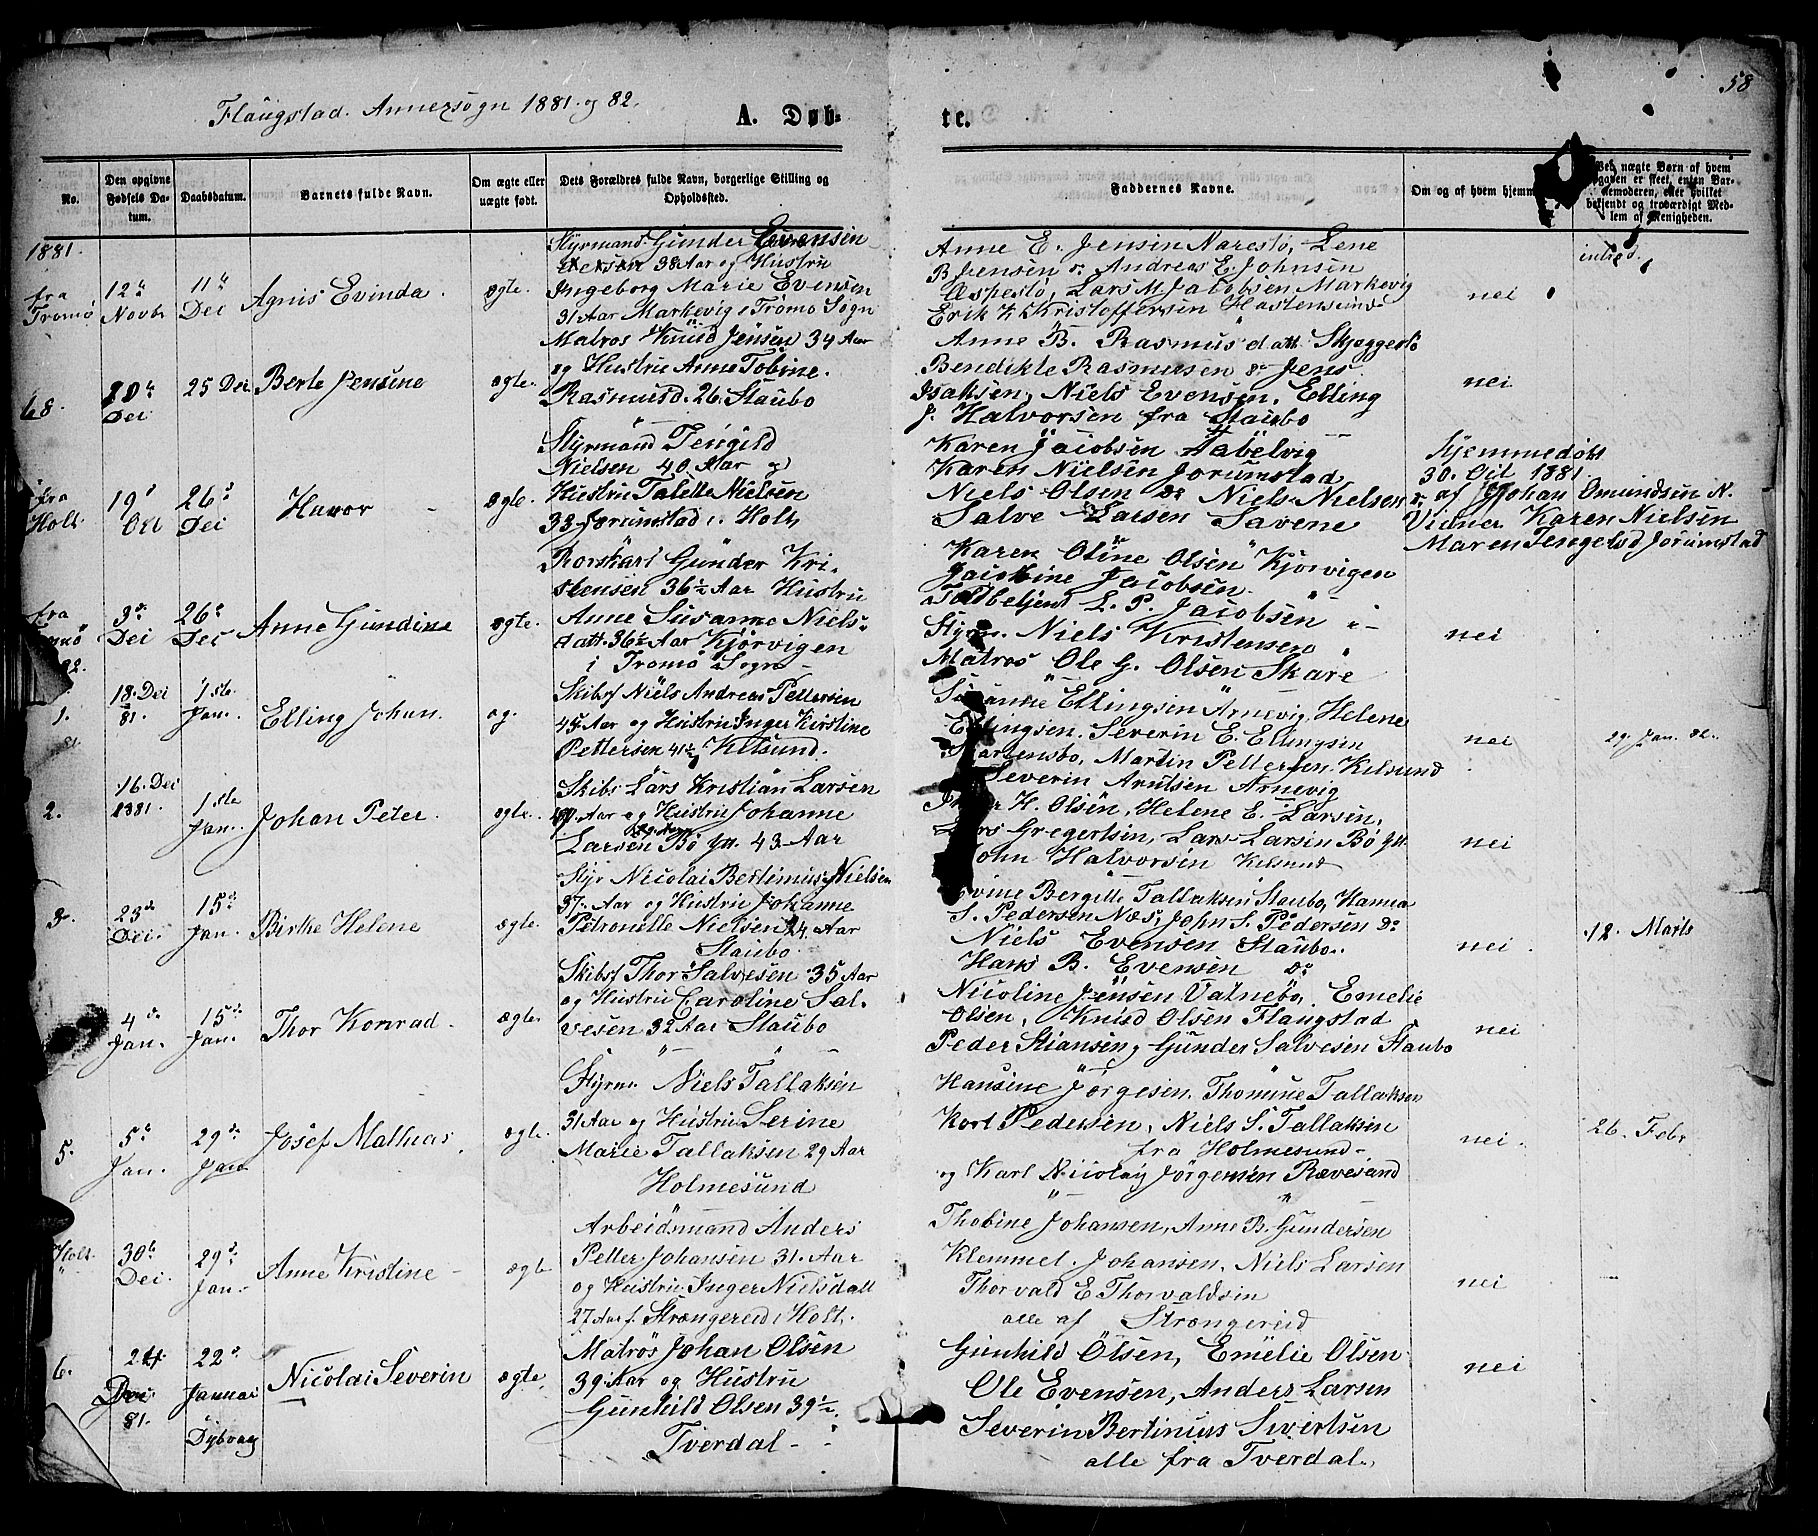 Flaugstad Annexsogn 1881 og 82.
58
A. Døb-
te.
No.
Den opgivne Fødsels Datum.
Daabsdatum.
Barnets fulde Navn.
Om ægte eller uægte født.
Dets Forældres fulde Navn, borgerlige Stilling og Opholdsted.
Faddernes Navne.
Om og af hvem hjemme
Ved uægte Børn af hvem
en er skeet, enten Bar-
nemoderen, eller hvilket
bekjendt og troværdigt Med-
lem af Menigheden.
1881.
fra Tromø
12te Novbr
11te Dec
Agnis Evinda.
ægte.
Styrmand Gunder
38 Aar og Hustru
Ingeborg Marie Evensen
31 Aar Markevig i Tromø Sogn
Anne E. Jensen Narestø, Lene
B. Jensen Andreas E. Johnsen
Æspestø, Lars M. Jacobsen Markevig
Erik K. Kristoffersen Hastensund
nei
68.
20 Dec
25 Dec
Berte Jensine
ægte.
Matros Knud Jensen 34 Aar
og Hustru Anne Tobine
Rasmusd. 26. Staubo
Anne B. Rasmusdatt Skjeggestø
Benedikte Rasmusen & Jens
Isaksen, Niels Evensen, Elling
J. Halvorsen fra Staubo
nei
fra Holt.
19d Oct
26d Dec
Havor
ægte.
Styrmand Tengild
Nielsen 40 Aar og
Hustru Talette Nielsen
33 Jorumstad i Holt
Karen Jacobsen Aabelvig
Karen Nielsen Jorumstad
Niels Olsen Do Niels Nielsen
Salve Larsen Savene
Hjemmedøbt
30. Oct 1881
af Johan Omundsen N.
Vidner Karen Nielsen
Maren Tengelsd Jorumstad
fra
3d Dec
26d Dec
Anne Gundine
ægte.
Rorskarl Gunder Kri-
stensen 36½ Aar Hustru
Anne Susanne Niels-
datt. 36½ Aar Kjørvigen
i Tromø Sogn
Karen Oline Olsen Kjørvigen
Jacobine Jacobsen
Toldbetjent L. P. Jacobsen
Styrm. Niels Kristensen
Matros Ole G. Olsen Skare
nei
1.
18. Dec 81.
1ste Jan.
Elling Johan.
æg.
Skibsf Niels Andreas Pettersen
45 Aar og Hustru Inger Kirstine
Pettersen 41½ Kilsund.
Susanne Ellingsen Arnevig, Helene
Ellingsen. Severin E. Ellingsen
Martensbo, Martin Pettersen Kilsund
Severin Arntsen Arnevig
nei
29 Jan. 82.
2.
16. Dec 1881.
1ste Jan.
Johan Peter.
ægte.
Skibs Lars Kristian Larsen
Aar og Hustru Johanne
Larsen Bø 43 Aar
H. Olsen, Helene E. Larsen,
Lars Gregertsen, Lars Larsen Bø
John Halvorsen Kilsund
nei
3.
23de Dec.
15de Jan.
Birthe Helene
ægte.
Styr Nicolai Bertinius Nielsen
37. Aar og Hustru Johanne
Petronelle Nielsen 24. Aar
Staubo
Bergitte Tallaksen Staubo, Hanna
S. Pedersen Næs, John S. Pedersen Do
Niels Evensen Staubo.
Hans B. Evensen Do
nei.
12. Marts
4de Jan.
15de Jan.
Thor Konrad.
ægte.
Skibsf Thor Salvesen 35 Aar
og Hustru Caroline Sal-
vesen 32 Aar Staubo
Nicoline Jensen Vatnebø, Emelie
Olsen, Knud Olsen Flaugstad
Peder Stiansen, Gunder Salvesen Staubo
nei
5.
5d Jan.
29de Jan
Josef Mathias.
ægte.
Styrm. Niels Tallaksen
31 Aar og Hustru Serine
Marie Tallaksen 29 Aar
Holmesund
Hansine Jørgesen, Thomine Tallaksen
Kort Pedersen, Niels S. Tallaksen
fra Holmesund
og Karl Nicolay Jørgensen Rævesand
nei.
26. Febr
Holt.
30te Dec.
29d Jan.
Anne Kristine
ægte
Arbeidsmand Anders
Petter Johansen 31. Aar
og Hustru Inger Nielsdatt
27 Aar f. Strængereid i Holt.
Thobine Johansen, Anne B. Gundersen
Klemmet Johansen, Niels Larsen
Thorvald E Thorvaldsen
alle af Strængereid
nei
6.
24. Dec 81.
22d Januar Dybvaag
Nicolai Severin
ægte.
Matros Johan Olsen
39 Aar og Hustru
Gunhild Olsen 39½.
Tverdal
Gunhild Olsen, Emelie Olsen
Ole Evensen, Anders Larsen
Severin Bertinius Sivertsen
alle fra Tverdal.
nei